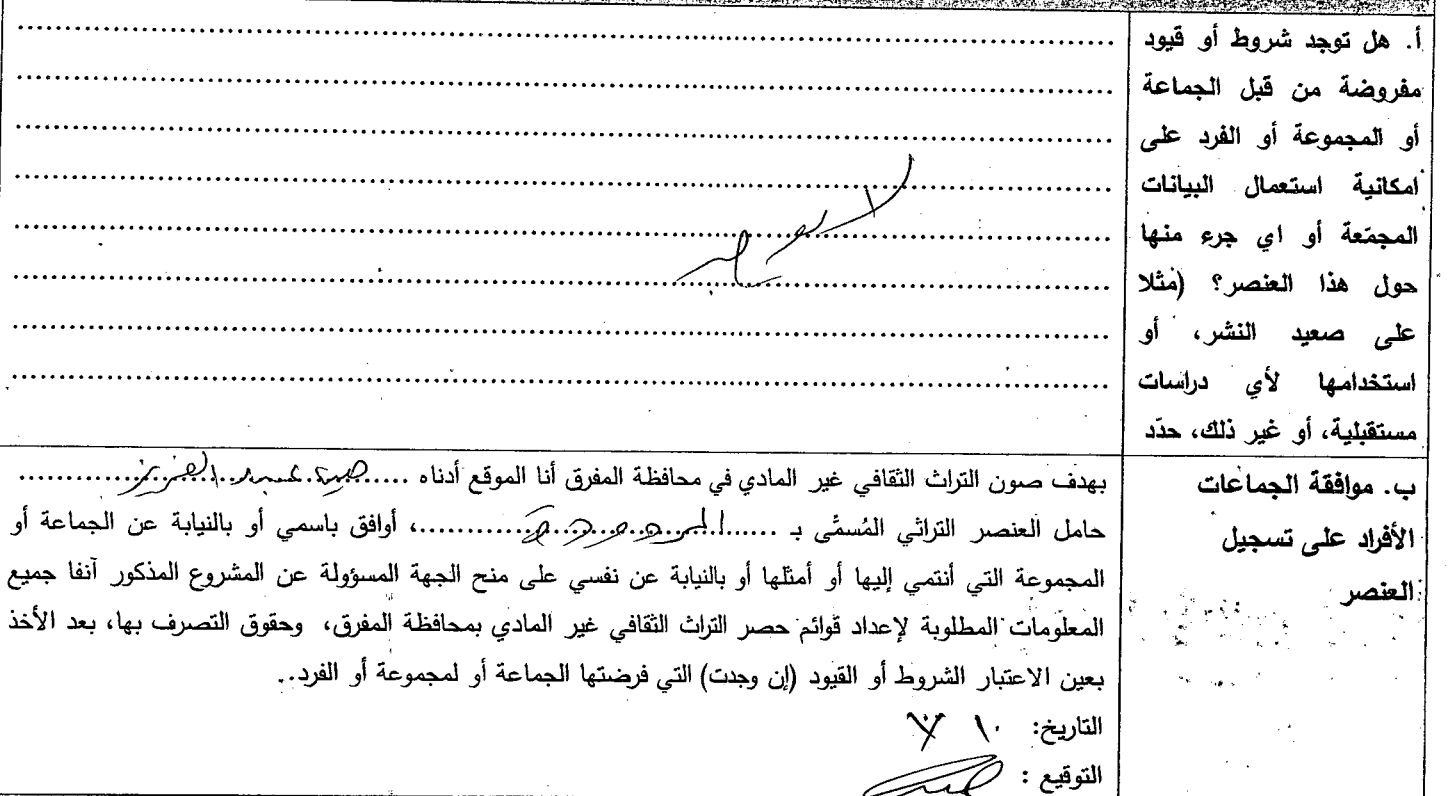 أ. هل توجد شروط أو قيود
مفروضة من قبل الجماعة
أو المجموعة أو الفرد على
امكانية استعمال البيانات
المجمّعة أو اي جرء منها
حول هذا العنصر؟ (مثلا
على صعيد النشر، أو
استخدامها لأي دراسات
مستقبلية، أو غير ذلك، حدّد
لا يوجد
ب. موافقة الجماعات
الأفراد على تسجيل
العنصر
بهدف صون التراث الثقافي غير المادي في محافظة المفرق أنا الموقع أدناه ..... العزيز ............
حامل العنصر التراثي المُسمَّى بـ ............، أوافق باسمي أو بالنيابة عن الجماعة أو
المجموعة التي أنتمي إليها أو أمثلها أو بالنيابة عن نفسي على منح الجهة المسؤولة عن المشروع المذكور آنفا جميع
المعلومات المطلوبة لإعداد قوائم حصر التراث الثقافي غير المادي بمحافظة المفرق، وحقوق التصرف بها، بعد الأخذ
بعين الاعتبار الشروط أو القيود (إن وجدت) التي فرضتها الجماعة أو لمجموعة أو الفرد..
التاريخ: ١٠
التوقيع :